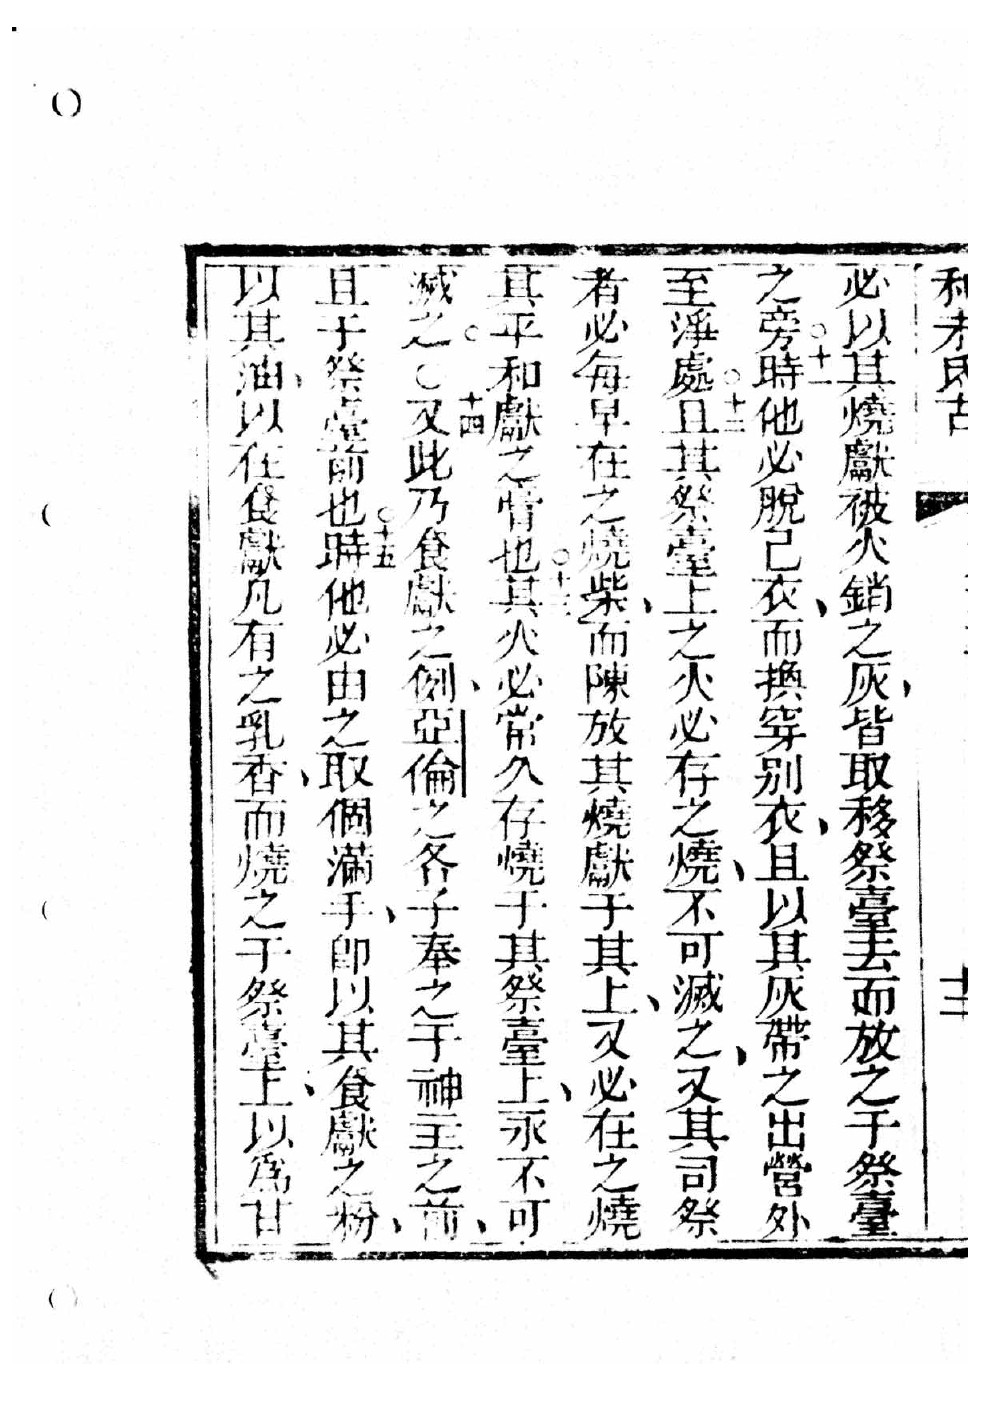 必以其燒獻被火銷之灰、皆取移祭臺去而放之于祭臺
之旁○十一時他必脫己衣、而換穿別衣、且以其灰帶之出營外
至淨處○十二且其祭臺上之火必存之燒、不可滅之、又其司祭
者必每早在之燒柴、而陳放其燒獻于其上、又必在之燒
其平和獻之膏也○十三其火必常久存燒于其祭臺上、永不可
滅之○○十四又此乃食獻之例、亞倫之各子奉之于神主之前、
且于祭臺前也○十五時他必由之取個滿手、即以其食獻之粉、
以其油、以在食獻凡有之乳香、而燒之于祭臺上、以為甘
十二